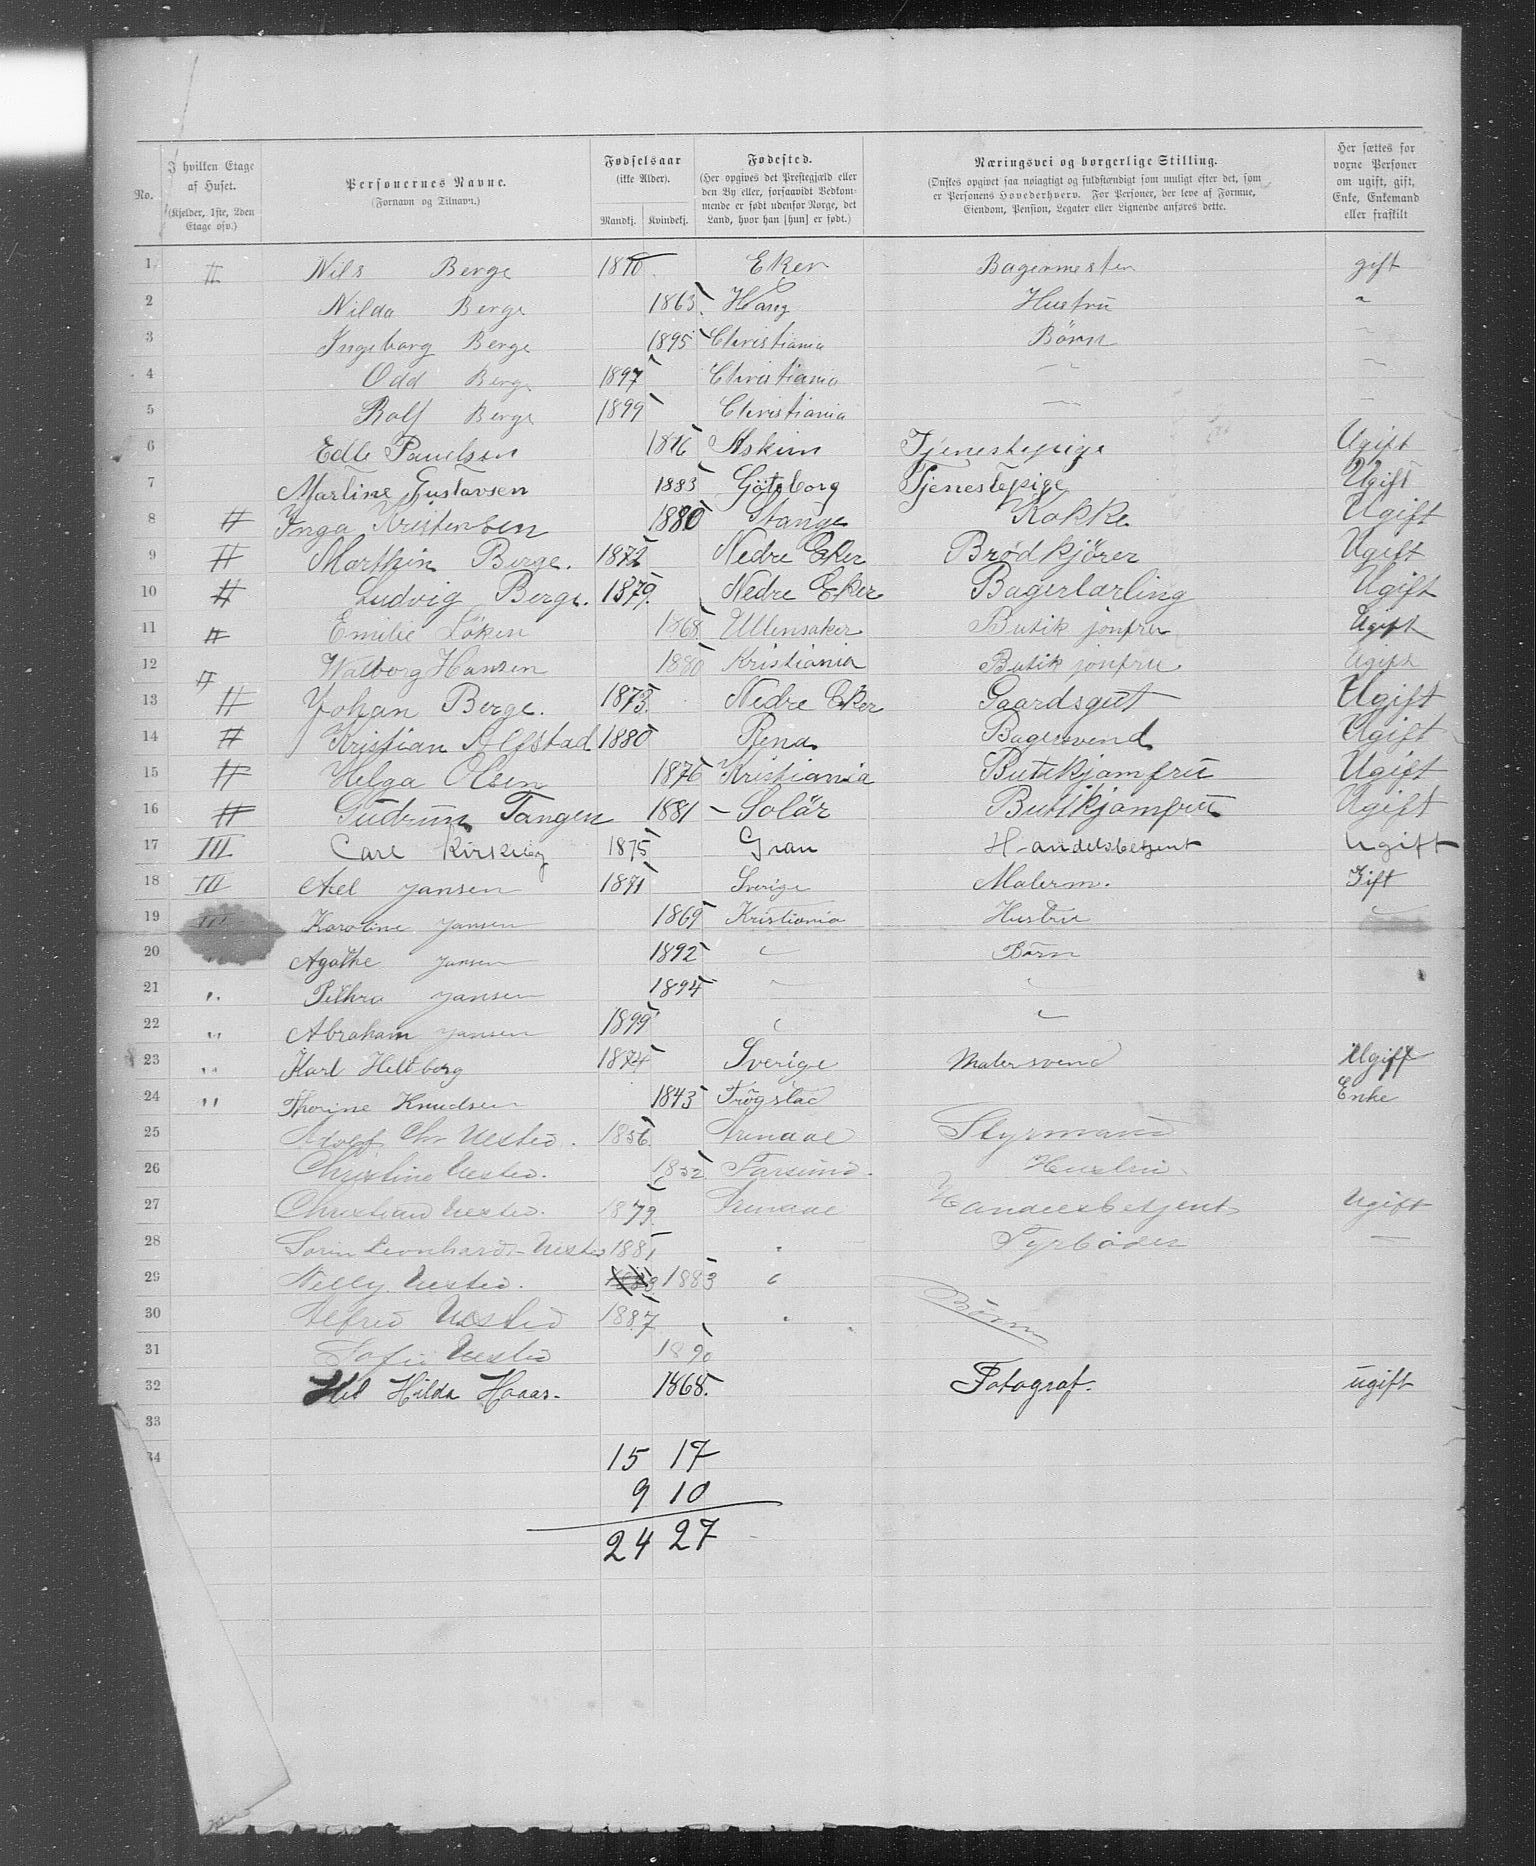 No. | I hvilken Etage af Huset. (Kjelder, 1ste, 2den Etage osv.) | Personernes Navne. (Fornavn og Tilnavn.) | Fødselsaar (ikke Alder). Mandkj. Kvindekj. | Fødested. (Her opgives det Prestegjæld eller den By eller, forsaavidt Vedkommende er født udenfor Norge, det Land, hvor han [hun] er født.) | Næringsvei og borgerlige Stilling. (Ønskes opgivet saa nøiagtigt og fuldstændigt som muligt efter det, som er Personens Hovederhverv. For Personer, der leve af Formue, Eiendom, Pension, Legater eller Lignende anføres dette. | Her sættes for voxne Personer om ugift, gift, Enke, Enkemand eller fraskilt
1 II Nils Berge 1870 Eker Bagermester gift
2 Nilda Berge 1863 Haug Hustru "
3 Ingeborg Berge 1895 Christiania Børn
4 Odd Berge 1897 Christiania "
5 Rolf Berge 1899 Christiania
6 Edle Paulsen 1876 Askim Tjenestepige Ugift
7 Martine Gustavsen 1883 Göteborg Tjenestepige Ugift
8 II Inga Kristensen 1880 Stange Kokke Ugift
9 II Marthin Berge. 1872 Nedre Eker Brødkjörer Ugift
10 II Ludvig Berge. 1879. Nedre Eker Bagerlærling Ugift
11 II Emilie Löken 1868 Ullensaker Butik jonfru Ugift
12 II Walborg Hansen 1880 Kristiania Butik jonfru Ugift
13 II Johan Berge. 1873. Nedre Eker Gaardsgut Ugift
14 II Kristian Alfstad 1880 Rena Bagersvend Ugift
15 II Helga Olsen 1876 Kristiania Butikjomfru Ugift
16 II Gudrun Tangen 1881 Solör Butikjomfru Ugift
17 III Carl Kirkeby 1875 Gran Handelsbetjent Ugift
18 III Axel Jansen 1871 Sverige Malerm. Gift
19 III Karoline Jansen 1869 Kristiania Hustru "
20 " Agathe Jansen 1892 " Børn
21 " Pethra Jansen 1894 " "
22 " Abraham Jansen 1899 " "
23 " Karl Hellborg 1874 Sverige Malersvend Ugift
24 " Thorine Knudsen 1843 Trøgstad Enke
25 Adolf Chr Uested. 1856 Arendal Styrmand
26 Christine Uested. 1852 Farsund. Hustru
27 Christian Uested. 1879. Arendal Handelsbetjent Ugift
28 Sørin Leonhard Uested 1881 " Fyrbøder —
29 Nelly Uested. 1883 "
30 Alfred Uested 1887 " Børn
31 Sofie Uested 1890
32 Hilda Haaas. 1868. Fotograf. ugift
33
34
15 17
9 10
24 27